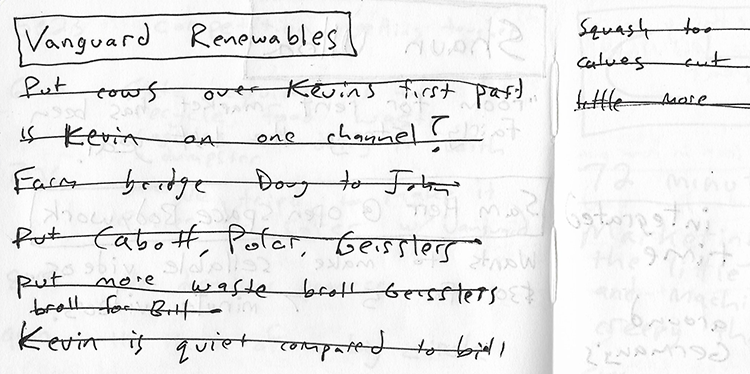 Vanguard Renewables
Put cows over Kevins first part
is Kevin on one channel?
Farm bridge Doug to John
Put Cabott, Polar, Geisslers
put more waste broll Geisslers
broll for Bill
Kevin is quiet compared to bill
Squash too
calves cut
little more